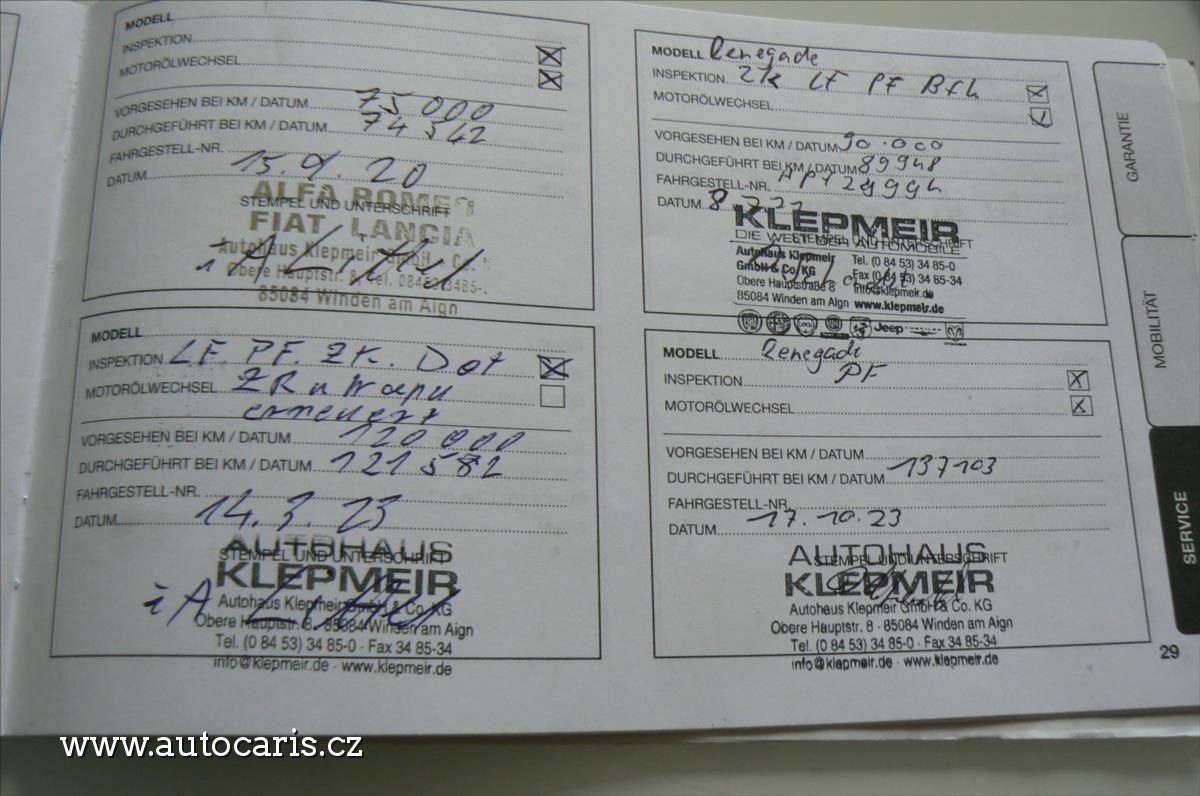 MODELL
INSPEKTION
MOTORÖLWECHSEL
VORGESEHEN BEI KM / DATUM 75 000
DURCHGEFÜHRT BEI KM / DATUM 74 542
FAHRGESTELL-NR.
DATUM 15. 9. 20
ALFA ROMEO
STEMPEL UND UNTERSCHRIFT
FIAT LANCIA
Autohaus Klepmeir GmbH & Co. K
i A
Obere Hauptstr. 8, Tel. 08453/3485-
85084 Winden am Aign
MODELL
INSPEKTION LF. PF. ZK. Dot
MOTORÖLWECHSEL ZR u Wapu
erneuert
VORGESEHEN BEI KM / DATUM 120 000
DURCHGEFÜHRT BEI KM / DATUM 121 582
FAHRGESTELL-NR.
DATUM 14. 3. 23
AUTOHAUS
STEMPEL UND UNTERSCHRIFT
KLEPMEIR
i A
Autohaus Klepmeir GmbH & Co. KG
Obere Hauptstr. 8 · 85084 Winden am Aign
Tel. (0 84 53) 34 85-0 · Fax 34 85-34
info@klepmeir.de · www.klepmeir.de
MODELL Renegade
INSPEKTION ZK LF PF Bfl
MOTORÖLWECHSEL
VORGESEHEN BEI KM / DATUM 90.000
DURCHGEFÜHRT BEI KM / DATUM 89948
FAHRGESTELL-NR.
DATUM 8
KLEPMEIR
STEMPEL UND UNTERSCHRIFT
DIE WELT DER AUTOMOBILE
Autohaus Klepmeir Tel. (0 84 53) 34 85-0
GmbH & Co. KG Fax (0 84 53) 34 85-34
Obere Hauptstraße 8 info@klepmeir.de
85084 Winden am Aign www.klepmeir.de
Jeep
MODELL Renegade
INSPEKTION PF
MOTORÖLWECHSEL
VORGESEHEN BEI KM / DATUM
DURCHGEFÜHRT BEI KM / DATUM 137103
FAHRGESTELL-NR.
DATUM 17.10.23
AUTOHAUS
STEMPEL UND UNTERSCHRIFT
KLEPMEIR
Autohaus Klepmeir GmbH & Co. KG
Obere Hauptstr. 8 · 85084 Winden am Aign
Tel. (0 84 53) 34 85-0 · Fax 34 85-34
info@klepmeir.de · www.klepmeir.de
GARANTIE
MOBILITÄT
SERVICE
29
www.autocaris.cz